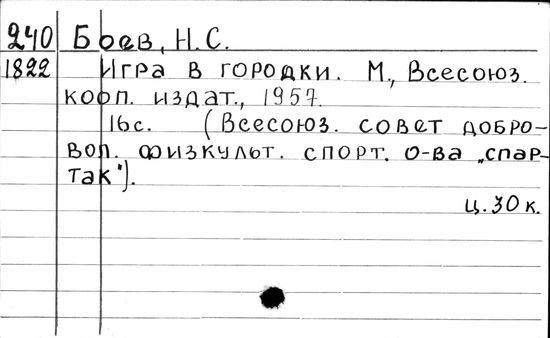 240 Боев, Н.С.
1822 Игра в городки. М., Всесоюз.
кооп. издат., 1957.
16с. (Всесоюз. совет добро-
вол. физкульт. спорт. о-ва „Спар-
так").
ц. 30 к.